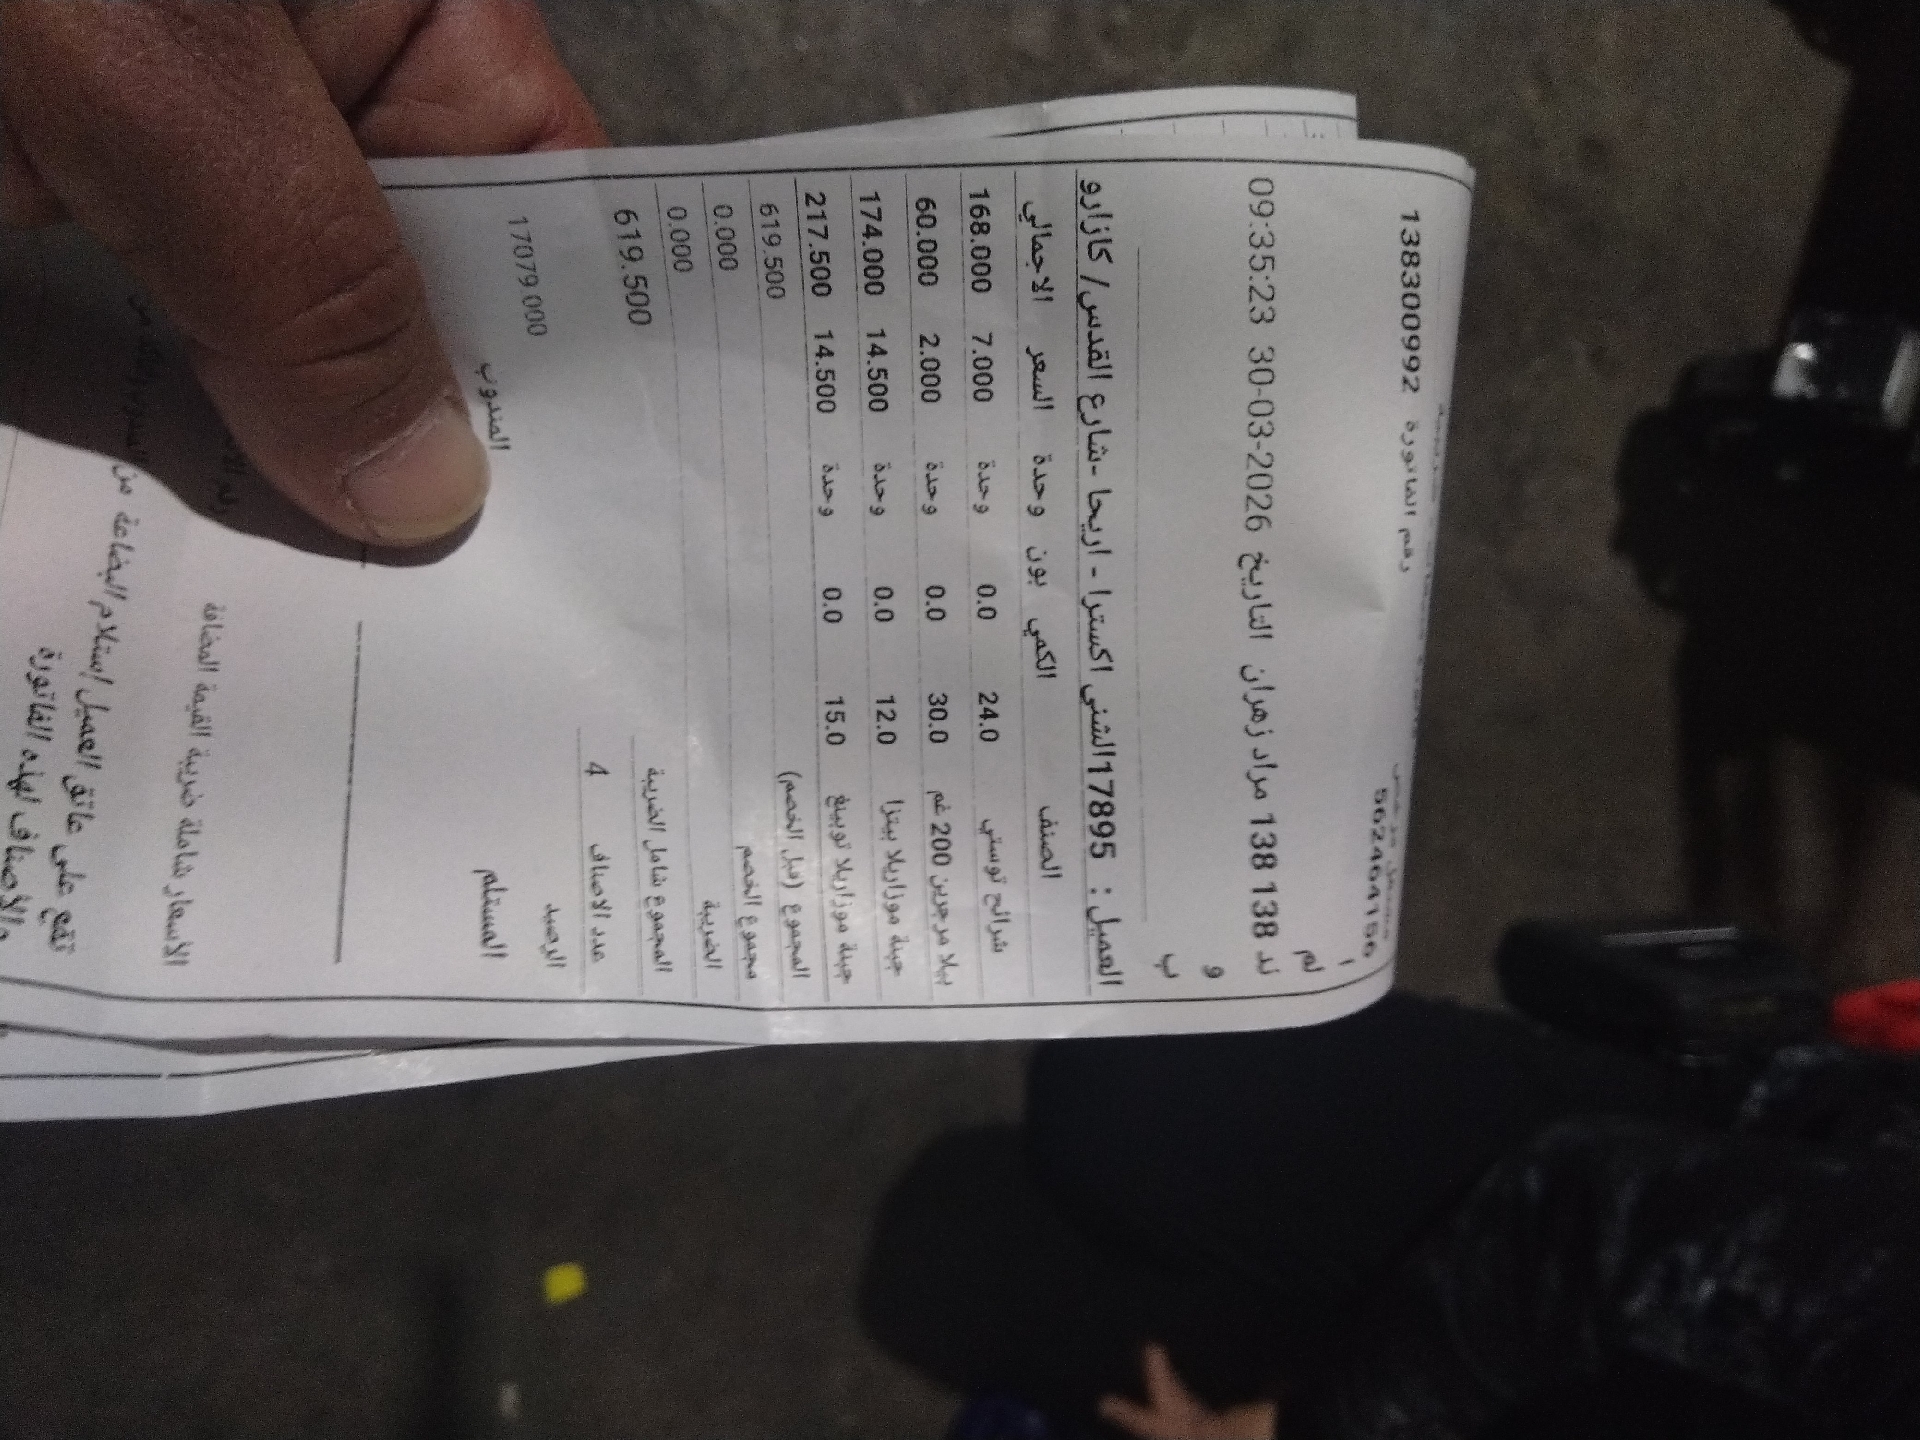 562464156
رقم الفاتورة 138300992
أ
لم
ند 138 138 مراد زهران التاريخ 30-03-2026 09:35:23
و
ب
العميل : 17895الشني اكسترا - اريحا -شارع القدس/ كازارو
الصنف الكمي بون وحدة السعر الاجمالي
شرائح توستي 24.0 0.0 وحدة 7.000 168.000
بيلا مرجرين 200 غم 30.0 0.0 وحدة 2.000 60.000
جبنة موزاريلا بيتزا 12.0 0.0 وحدة 14.500 174.000
جبنة موزاريلا توبينغ 15.0 0.0 وحدة 14.500 217.500
المجموع (قبل الخصم) 619.500
مجموع الخصم 0.000
الضريبة 0.000
المجموع شامل الضريبة 619.500
عدد الاصناف 4
الرصيد 17079.000
المستلم المندوب
الاسعار شاملة ضريبة القيمة المضافة
تقع على عاتق العميل استلام البضاعة من المندوب
والأصناف لهذه الفاتورة